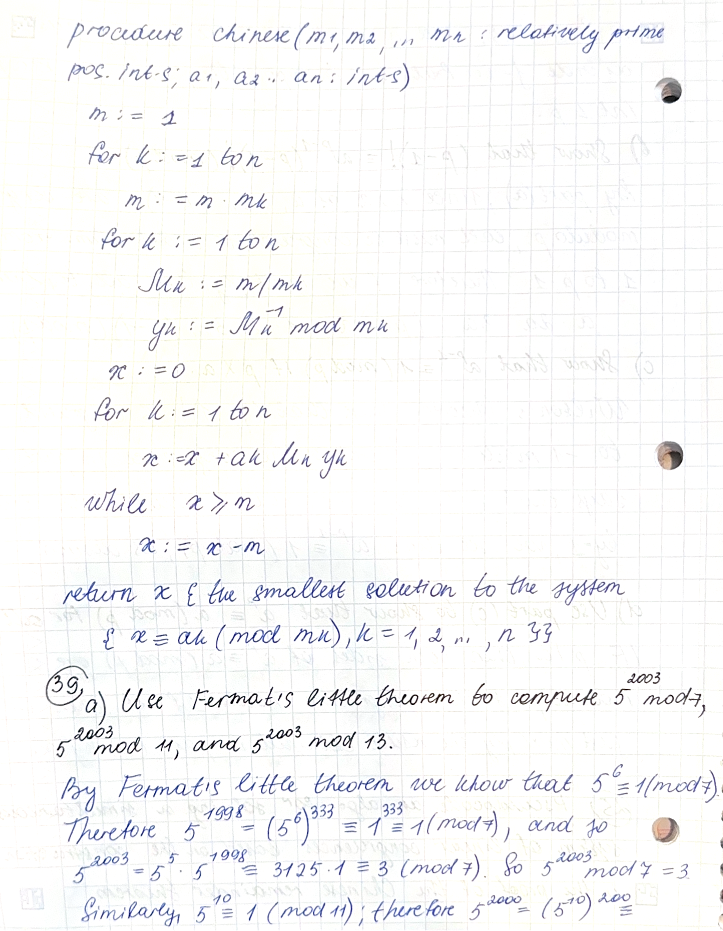 procedure chinese (m1, m2, ... mn : relatively prime
pos. int-s; a1, a2 .. an : int-s)
m := 1
for k := 1 to n
m := m · mk
for k := 1 to n
Mk := m/mk
yk := Mk⁻¹ mod mk
x := 0
for k := 1 to n
x := x + ak Mk yk
while x ⩾ m
x := x - m
return x { the smallest solution to the system
{ x ≡ ak (mod mk), k = 1, 2, ... , n }}
39. a) Use Fermat's little theorem to compute 5²⁰⁰³ mod 7,
5²⁰⁰³ mod 11, and 5²⁰⁰³ mod 13.
By Fermat's little theorem we know that 5⁶ ≡ 1 (mod 7).
Therefore 5¹⁹⁹⁸ = (5⁶)³³³ ≡ 1³³³ ≡ 1 (mod 7), and so
5²⁰⁰³ = 5⁵ · 5¹⁹⁹⁸ ≡ 3125 · 1 ≡ 3 (mod 7). So 5²⁰⁰³ mod 7 = 3.
Similarly, 5¹⁰ ≡ 1 (mod 11); therefore 5²⁰⁰⁰ = (5¹⁰)²⁰⁰ ≡